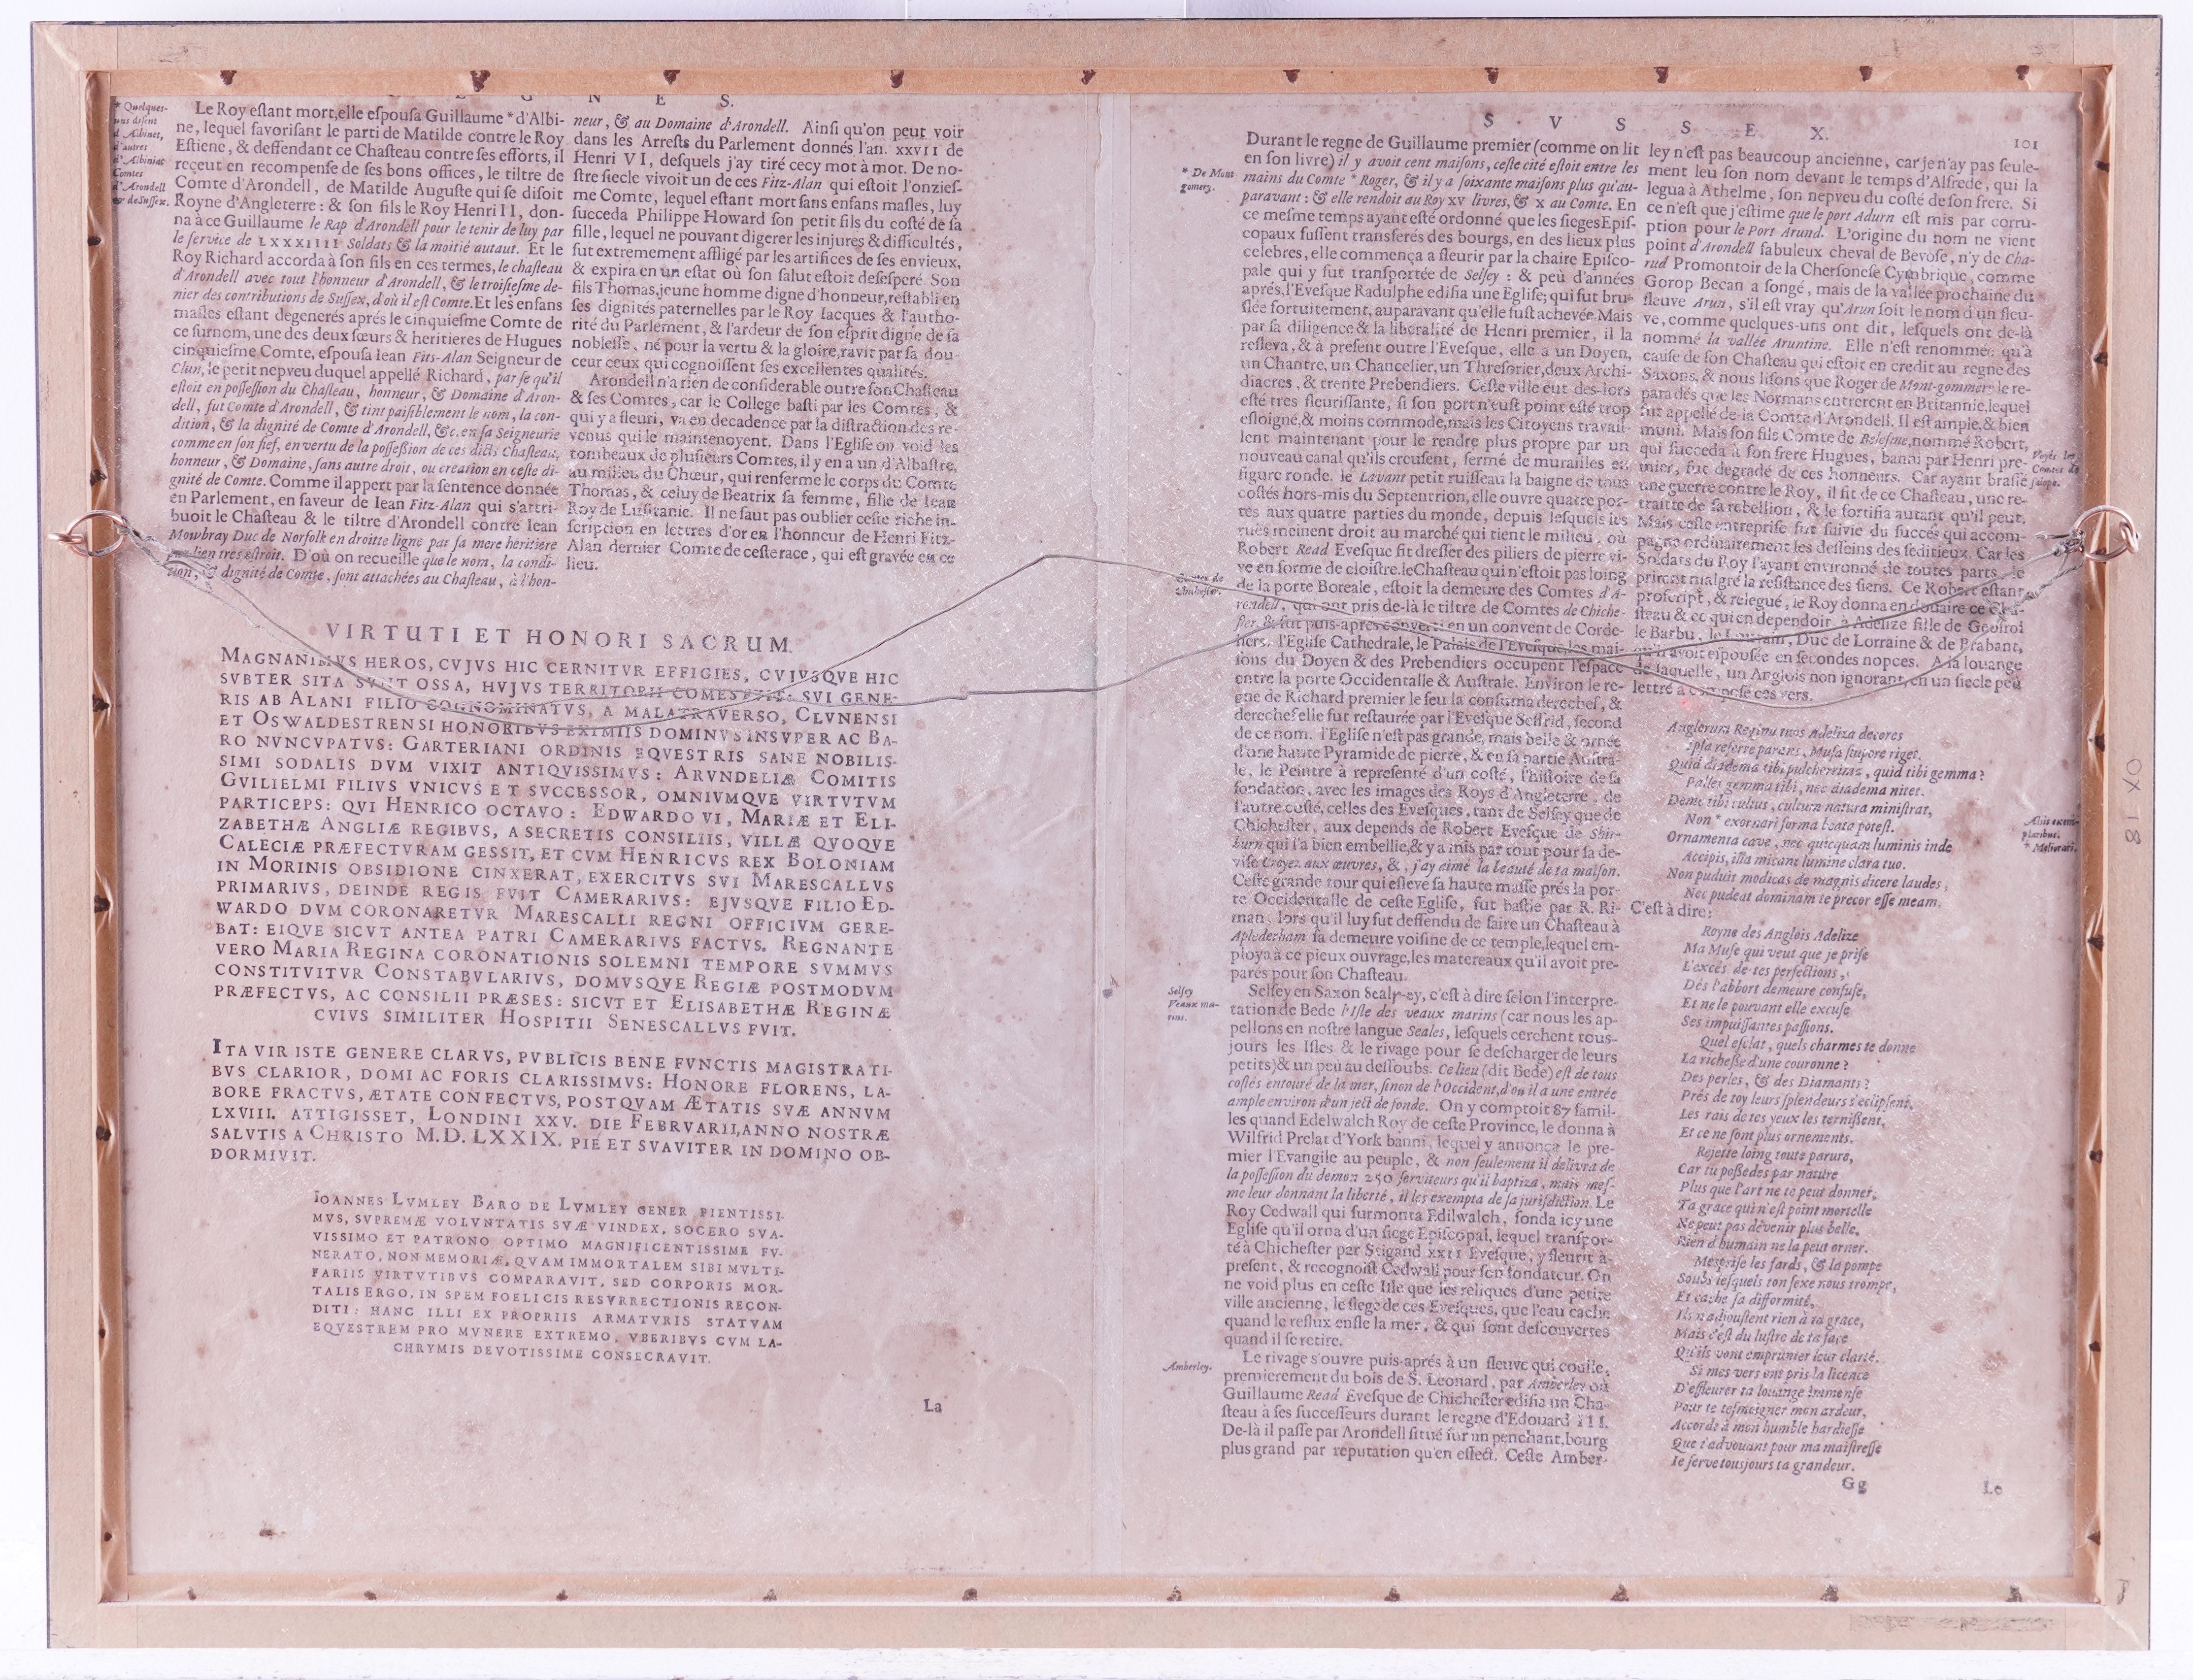 E G N E S.
* Quelques-
uns disent
d'Albinet,
d'autres
d'Albiniac
Comtes
d'Arondell
& de Sussex.
Le Roy estant mort, elle espousa Guillaume * d'Albi-
ne, lequel favorisant le parti de Matilde contre le Roy
Estiene, & deffendant ce Chasteau contre ses efforts, il
reçeut en recompense de ses bons offices, le tiltre de
Comte d'Arondell, de Matilde Auguste qui se disoit
Royne d'Angleterre: & son fils le Roy Henri II, don-
na à ce Guillaume le Rap d'Arondell pour le tenir de luy par
le service de LXXXIIII Soldats & la moitié autaut. Et le
Roy Richard accorda à son fils en ces termes, le chasteau
d'Arondell avec tout l'honneur d'Arondell, & le troisiesme de-
nier des contributions de Sussex, d'où il est Comte. Et les enfans
masles estant degenerés aprés le cinquiesme Comte de
ce surnom, une des deux sœurs & heritieres de Hugues
cinquiesme Comte, espousa Iean Fits-Alan Seigneur de
Clun, le petit nepveu duquel appellé Richard, par se qu'il
estoit en possession du Chasteau, honneur, & Domaine d'Aron-
dell, fut Comte d'Arondell, & tint paisiblement le nom, la con-
dition, & la dignité de Comte d'Arondell, &c. en sa Seigneurie
comme en son fief, en vertu de la possession de ces dicts Chasteau,
honneur, & Domaine, sans autre droit, ou creation en ceste di-
gnité de Comte. Comme il appert par la sentence donnée
en Parlement, en faveur de Iean Fitz-Alan qui s'attri-
buoit le Chasteau & le tiltre d'Arondell contre Iean
Mowbray Duc de Norfolk en droitte ligne par sa mere heritiere
par lien tres estroit. D'où on recueille que le nom, la condi-
tion, & dignité de Comte, sont attachées au Chasteau, à l'hon-
neur, & au Domaine d'Arondell. Ainsi qu'on peut voir
dans les Arrests du Parlement donnés l'an. XXVII de
Henri VI, desquels j'ay tiré cecy mot à mot. De no-
stre siecle vivoit un de ces Fitz-Alan qui estoit l'onzies-
me Comte, lequel estant mort sans enfans masles, luy
succeda Philippe Howard son petit fils du costé de sa
fille, lequel ne pouvant digerer les injures & difficultés,
fut extremement affligé par les artifices de ses envieux,
& expira en un estat où son salut estoit desesperé. Son
fils Thomas, jeune homme digne d'honneur, restabli en
ses dignités paternelles par le Roy Iacques & l'autho-
rité du Parlement, & l'ardeur de son esprit digne de sa
noblesse, né pour la vertu & la gloire, ravit par sa dou-
ceur ceux qui cognoissent ses excellentes qualités.
Arondell n'a rien de considerable outre son Chasteau
& ses Comtes, car le College basti par les Comtes, &
qui y a fleuri, va en decadence par la distraction des re-
venus qui le maintenoyent. Dans l'Eglise on void les
tombeaux de plusieurs Comtes, il y en a un d'Albastre,
au milieu du Chœur, qui renferme le corps du Comte
Thomas, & celuy de Beatrix sa femme, fille de Iean
Roy de Lusitanie. Il ne faut pas oublier ceste riche in-
scription en lettres d'or en l'honneur de Henri Fitz-
Alan dernier Comte de ceste race, qui est gravée en ce
lieu.
VIRTUTI ET HONORI SACRUM.
MAGNANIMVS HEROS, CVJVS HIC CERNITVR EFFIGIES, CVJVSQVE HIC
SVBTER SITA SVNT OSSA, HVJVS TERRITORII COMES FVIT: SVI GENE-
RIS AB ALANI FILIO COGNOMINATVS, A MALATRAVERSO, CLVNENSI
ET OSWALDESTRENSI HONORIBVS EXIMIIS DOMINVS INSVPER AC BA-
RO NVNCVPATVS: GARTERIANI ORDINIS EQVESTRIS SANE NOBILIS-
SIMI SODALIS DVM VIXIT ANTIQVISSIMVS: ARVNDELIÆ COMITIS
GVILIELMI FILIVS VNICVS ET SVCCESSOR, OMNIVMQVE VIRTVTVM
PARTICEPS: QVI HENRICO OCTAVO: EDWARDO VI, MARIÆ ET ELI-
ZABETHÆ ANGLIÆ REGIBVS, A SECRETIS CONSILIIS, VILLÆ QVOQVE
CALECIÆ PRÆFECTVRAM GESSIT, ET CVM HENRICVS REX BOLONIAM
IN MORINIS OBSIDIONE CINXERAT, EXERCITVS SVI MARESCALLVS
PRIMARIVS, DEINDE REGIS FVIT CAMERARIVS: EJVSQVE FILIO ED-
WARDO DVM CORONARETVR MARESCALLI REGNI OFFICIVM GERE-
BAT: EIQVE SICVT ANTEA PATRI CAMERARIVS FACTVS. REGNANTE
VERO MARIA REGINA CORONATIONIS SOLEMNI TEMPORE SVMMVS
CONSTITVITVR CONSTABVLARIVS, DOMVSQVE REGIÆ POSTMODVM
PRÆFECTVS, AC CONSILII PRÆSES: SICVT ET ELISABETHÆ REGINÆ
CVIVS SIMILITER HOSPITII SENESCALLVS FVIT.
ITA VIR ISTE GENERE CLARVS, PVBLICIS BENE FVNCTIS MAGISTRATI-
BVS CLARIOR, DOMI AC FORIS CLARISSIMVS: HONORE FLORENS, LA-
BORE FRACTVS, ÆTATE CONFECTVS, POSTQVAM ÆTATIS SVÆ ANNVM
LXVIII. ATTIGISSET, LONDINI XXV. DIE FEBRVARII, ANNO NOSTRÆ
SALVTIS A CHRISTO M.D.LXXIX. PIE ET SVAVITER IN DOMINO OB-
DORMIVIT.
IOANNES LVMLEY BARO DE LVMLEY GENER PIENTISSI-
MVS, SVPREMÆ VOLVNTATIS SVÆ VINDEX, SOCERO SVA-
VISSIMO ET PATRONO OPTIMO MAGNIFICENTISSIME FV-
NERATO, NON MEMORIÆ, QVAM IMMORTALEM SIBI MVLTI-
FARIIS VIRTVTIBVS COMPARAVIT, SED CORPORIS MOR-
TALIS ERGO, IN SPEM FOELICIS RESVRRECTIONIS RECON-
DITI: HANC ILLI EX PROPRIIS ARMATVRIS STATVAM
EQVESTREM PRO MVNERE EXTREMO, VBERIBVS CVM LA-
CHRYMIS DEVOTISSIME CONSECRAVIT.
La
S V S S E X.
101
* De Mont
gomery.
Durant le regne de Guillaume premier (comme on lit
en son livre) il y avoit cent maisons, ceste cité estoit entre les
mains du Comte * Roger, & il y a soixante maisons plus qu'au-
paravant: & elle rendoit au Roy XV livres, & X au Comte. En
ce mesme temps ayant esté ordonné que les sieges Epis-
copaux fussent transferés des bourgs, en des lieux plus
celebres, elle commença a fleurir par la chaire Episco-
pale qui y fut transportée de Selsey: & peù d'années
aprés, l'Evesque Radulphe edifia une Eglise, qui fut bru-
slée fortuitement, auparavant qu'elle fust achevée. Mais
par sa diligence & la liberalité de Henri premier, il la
resleva, & à present outre l'Evesque, elle a un Doyen,
un Chantre, un Chancelier, un Thresorier, deux Archi-
diacres, & trente Prebendiers. Ceste ville eut des-lors
esté tres fleurissante, si son port n'eust point esté trop
esloigné, & moins commode, mais les Citoyens travail-
lent maintenant pour le rendre plus propre par un
nouveau canal qu'ils creusent, fermé de murailles en
figure ronde. le Lavant petit ruisseau la baigne de tous
costés hors-mis du Septentrion, elle ouvre quatre por-
tes aux quatre parties du monde, depuis lesquels les
rues meinent droit au marché qui tient le milieu, où
Robert Read Evesque fit dresser des piliers de pierre vi-
ve en forme de cloistre. le Chasteau qui n'estoit pas loing
de la porte Boreale, estoit la demeure des Comtes d'A-
rondell, qui ont pris de-là le tiltre de Comtes de Chiche-
ster, & fut puis-apres converti en un convent de Corde-
liers. l'Eglise Cathedrale, le Palais de l'Evesque, les mai-
sons du Doyen & des Prebendiers occupent l'espace
entre la porte Occidentalle & Australe. Environ le re-
gne de Richard premier le feu la consuma derechef, &
derechef elle fut restaurée par l'Evesque Seffrid, second
de ce nom. l'Eglise n'est pas grande, mais belle & ornée
d'une haute Pyramide de pierre, & en sa partie Austra-
le, le Peintre à representé d'un costé, l'histoire de sa
fondation, avec les images des Roys d'Angleterre, de
l'autre costé, celles des Evesques, tant de Selsey que de
Chichester, aux depends de Robert Evesque de Shir-
burn qui l'a bien embellie, & y a mis par tout pour sa de-
vise Croyez aux œuvres, &, j'ay aimé la beauté de ta maison.
Ceste grande tour qui esleve sa haute masse prés la por-
te Occidentalle de ceste Eglise, fut bastie par R. Ri-
man, lors qu'il luy fut deffendu de faire un Chasteau à
Aplederham sa demeure voisine de ce temple, lequel em-
ploya à ce pieux ouvrage, les matereaux qu'il avoit pre-
parés pour son Chasteau.
Selsey
Veaux ma-
rins.
Selsey en Saxon Sealƿ-ey, c'est à dire selon l'interpre-
tation de Bede l'Isle des veaux marins (car nous les ap-
pellons en nostre langue Seales, lesquels cerchent tous-
jours les Isles & le rivage pour se descharger de leurs
petits) & un peu au dessoubs. Ce lieu (dit Bede) est de tous
costés entouré de la mer, sinon de l'Occident, d'où il a une entrée
ample environ d'un ject de fonde. On y comptoit 87 famil-
les quand Edelwalch Roy de ceste Province, le donna à
Wilfrid Prelat d'York banni, lequel y annonça le pre-
mier l'Evangile au peuple, & non seulement il delivra de
la possession du demon 250 serviteurs qu'il baptiza, mais mes-
me leur donnant la liberté, il les exempta de sa jurisdiction. Le
Roy Cedwall qui surmonta Edilwalch, fonda icy une
Eglise qu'il orna d'un siege Episcopal, lequel transpor-
té à Chichester par Stigand XXII Evesque, y fleurit à-
present, & recognoist Cedwall pour son fondateur. On
ne void plus en ceste Isle que les reliques d'une petite
ville ancienne, le siege de ces Evesques, que l'eau cache
quand le reflux enfle la mer, & qui sont descouvertes
quand il se retire.
Amberley.
Le rivage s'ouvre puis-aprés à un fleuve qui coule,
premierement du bois de S. Leonard, par Amberley où
Guillaume Read Evesque de Chichester edifia un Cha-
steau à ses successeurs durant le regne d'Edouard III.
De-là il passe par Arondell situé sur un penchant, bourg
plus grand par reputation qu'en effect. Ceste Amber-
ley n'est pas beaucoup ancienne, car je n'ay pas seule-
ment leu son nom devant le temps d'Alfrede, qui la
legua à Athelme, son nepveu du costé de son frere. Si
ce n'est que j'estime que le port Adurn est mis par corru-
ption pour le Port Arund. L'origine du nom ne vient
point d'Arondell fabuleux cheval de Bevose, n'y de Cha-
rud Promontoir de la Chersonese Cymbrique, comme
Gorop Becan a songé, mais de la vallée prochaine du
fleuve Arun, s'il est vray qu'Arun soit le nom d'un fleu-
ve, comme quelques-uns ont dit, lesquels ont de-là
nommé la vallée Aruntine. Elle n'est renommée qu'à
cause de son Chasteau qui estoit en credit au regne des
Saxons, & nous lisons que Roger de Mont-gommery le re-
para dés que les Normans entrerent en Britannie, lequel
fut appellé de la Comte d'Arondell. Il est ample, & bien
muni. Mais son fils Comte de Belesme, nommé Robert,
qui succeda à son frere Hugues, banni par Henri pre-
mier, fut degradé de ces honneurs. Car ayant brassé
une guerre contre le Roy, il fit de ce Chasteau, une re-
traitte de sa rebellion, & le fortifia autant qu'il peut.
Mais ceste entreprise fut suivie du succés qui accom-
pagne ordinairement les desseins des seditieux. Car les
Soldats du Roy l'ayant environné de toutes parts, le
prirent malgré la resistance des siens. Ce Robert estant
proscript, & relegué, le Roy donna en douaire ce Cha-
steau & ce qui en dependoit, à Adelize fille de Geofroi
le Barbu, le Louvain, Duc de Lorraine & de Brabant,
qu'il avoit espousée en secondes nopces. A la louange
de laquelle, un Anglois non ignorant, en un siecle peu
lettré a composé ces vers.
Anglorum Regina tuos Adeliza decores
Ipsa referre parans, Musa stupore riget.
Quid diadema tibi pulcherrima, quid tibi gemma?
Pallet gemma tibi, nec diadema nitet.
Deme tibi cultus, cultum natura ministrat,
Non * exornari forma beata potest.
Aliis exem-
plaribus.
* Meliorari.
Ornamenta cave, nec quicquam luminis inde
Accipis, illa micant lumine clara tuo.
Non puduit modicas de magnis dicere laudes,
Nec pudeat dominam te precor esse meam.
C'est à dire:
Royne des Anglois Adelize
Ma Muse qui veut que je prise
L'excés de tes perfections,
Dés l'abbort demeure confuse,
Et ne le pouvant elle excuse
Ses impuissantes passions.
Quel esclat, quels charmes te donne
La richesse d'une couronne?
Des perles, & des Diamants?
Prés de toy leurs splendeurs s'eclipsent,
Les rais de tes yeux les ternissent,
Et ce ne sont plus ornements.
Rejette loing toute parure,
Car tu possedes par nature
Plus que l'art ne te peut donner,
Ta grace qui n'est point mortelle
Ne peut pas devenir plus belle,
Rien d'humain ne la peut orner.
Mesprise les fards, & la pompe
Soubs lesquels ton sexe nous trompe,
Et cache sa difformité,
Ils n'adjoustent rien à ta grace,
Mais c'est du lustre de ta face
Qu'ils vont emprunter leur clarté.
Si mes vers ont pris la licence
D'effleurer ta louange immense
Pour te tesmoigner mon ardeur,
Accorde à mon humble hardiesse
Que t'advouant pour ma maistresse
Ie serve tousjours ta grandeur.
Gg
Le
OX 18